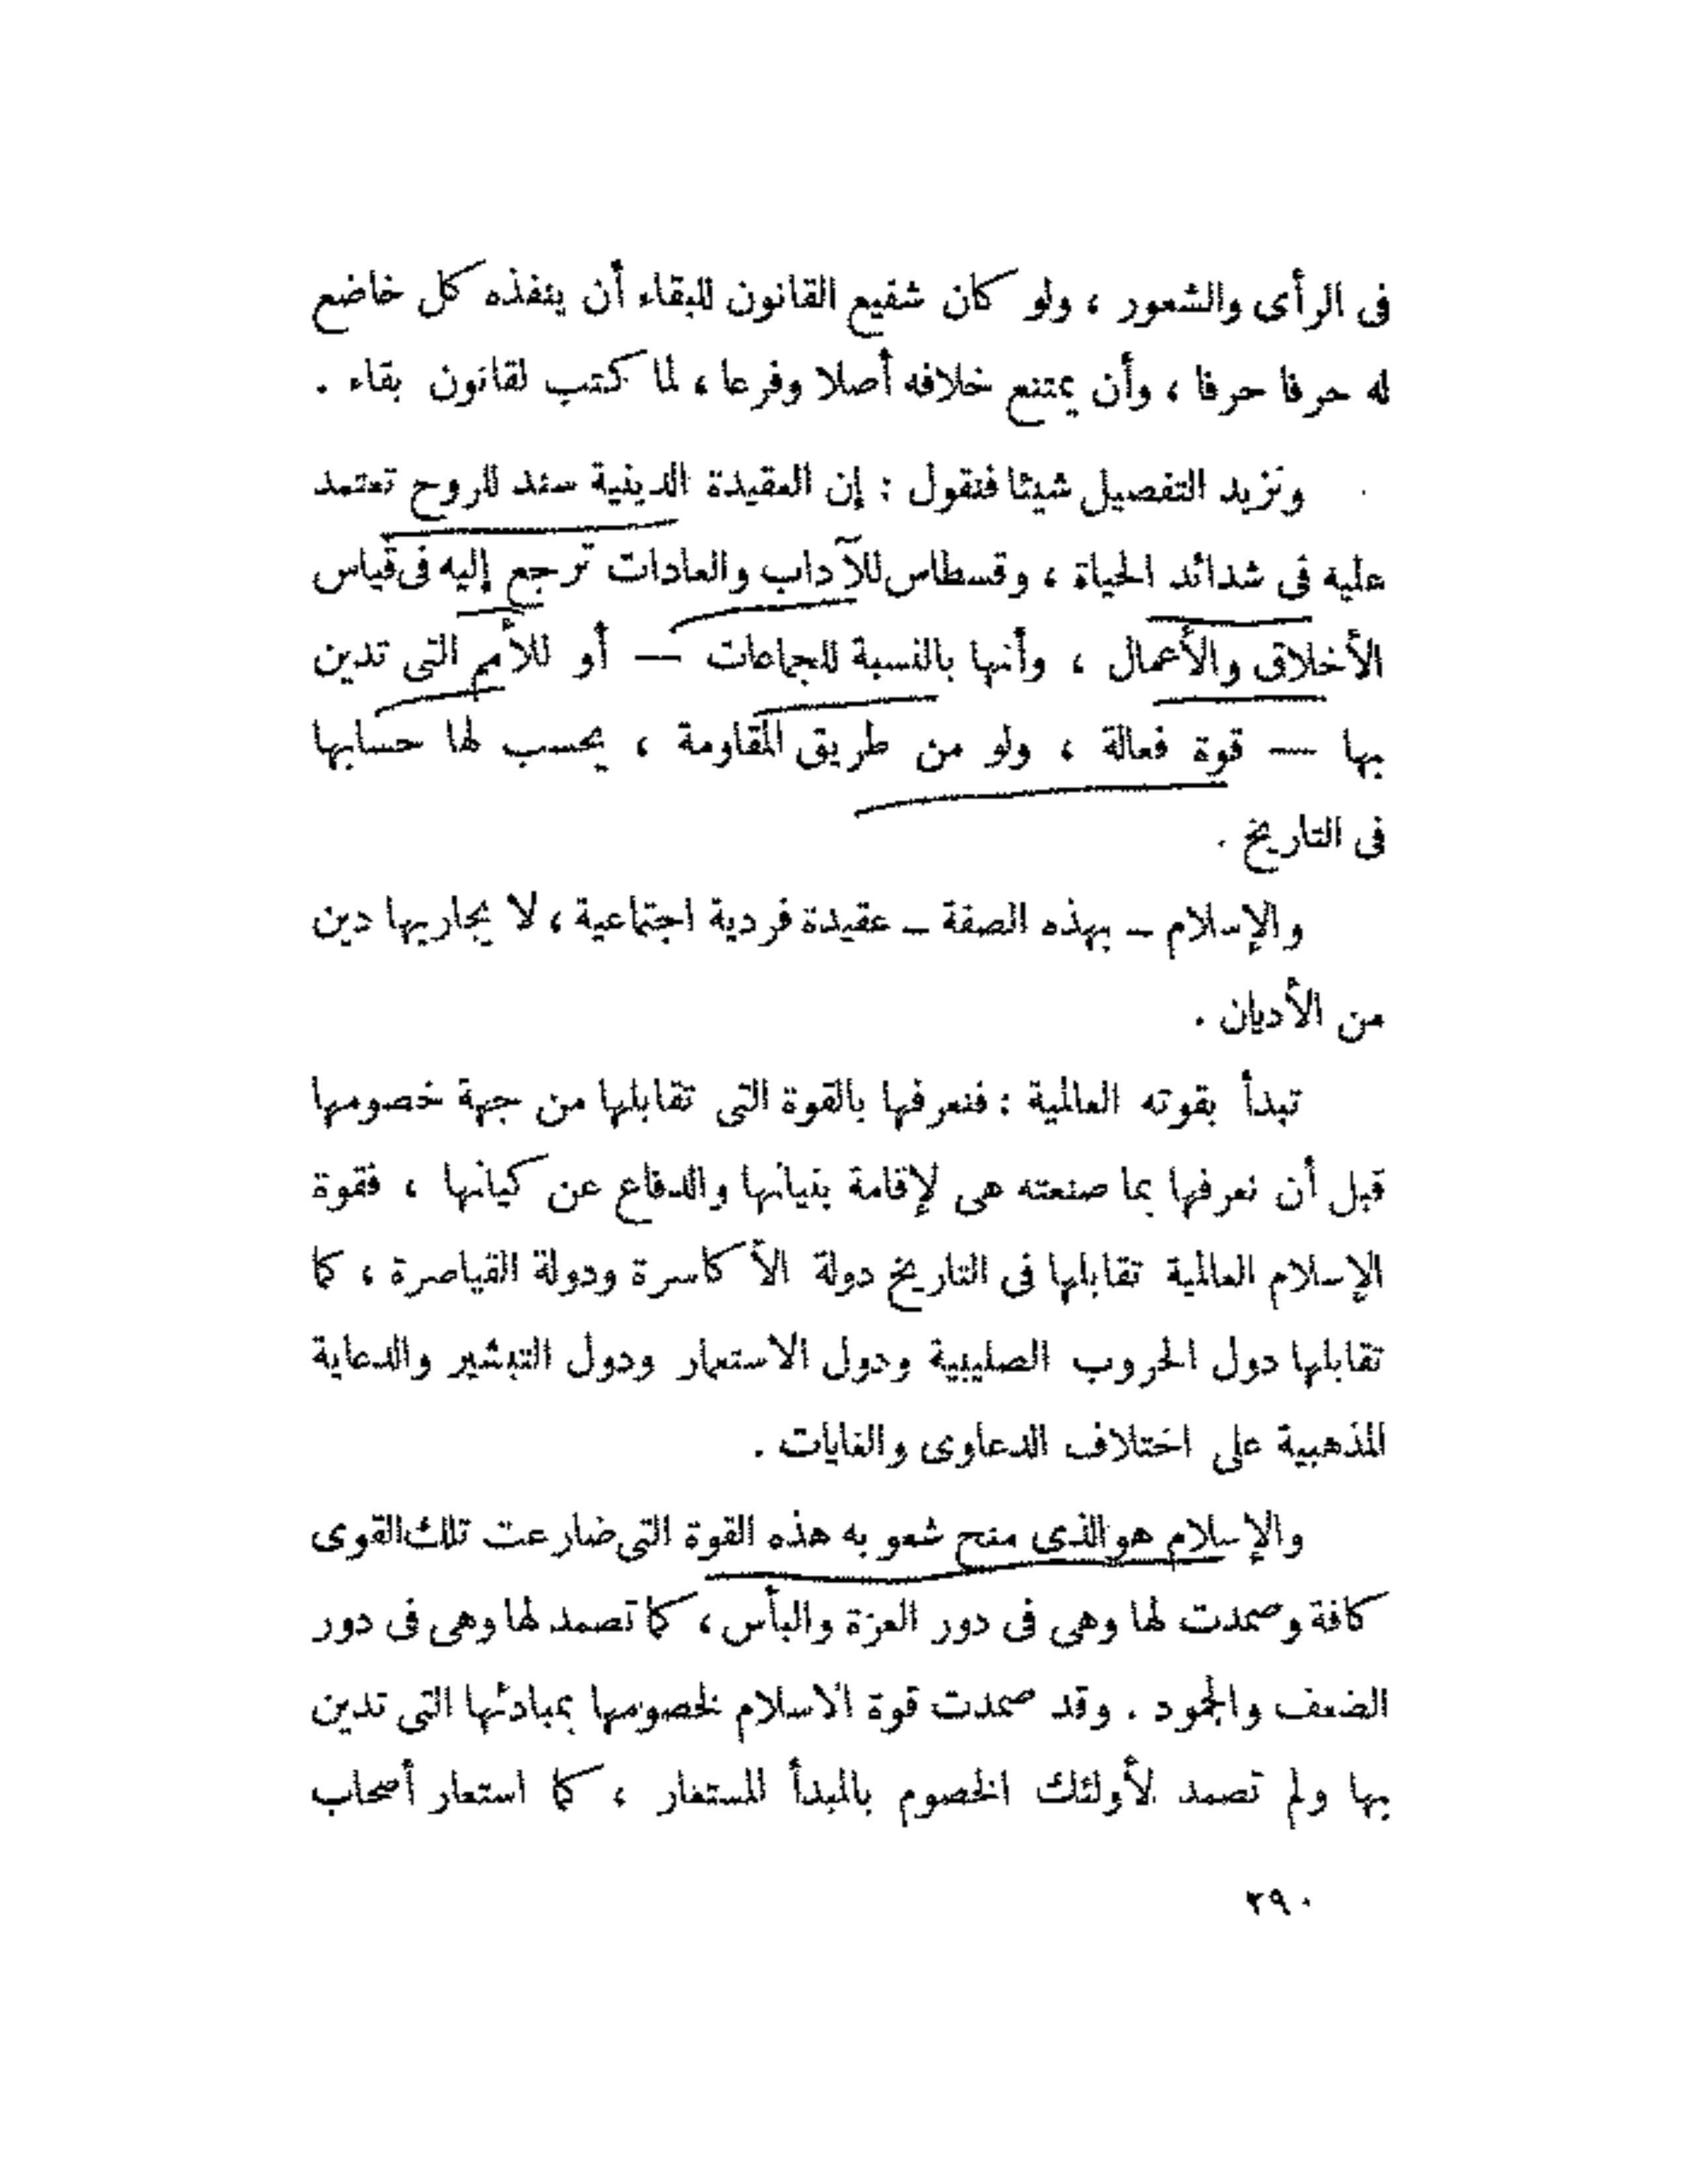 فى الرأى والشعور ، ولو كان شفيع القانون للبقاء أن ينفذه كل خاضع
له حرفا حرفا ، وأن يمتنع خلافه أصلا وفرعا ، لما كتب لقانون بقاء .
ونزيد التفصيل شيئا فنقول : إن العقيدة الدينية سند للروح تعتمد
عليه فى شدائد الحياة ، وقسطاس للآداب والعادات ترجع إليه فى قياس
الأخلاق والأعمال ، وأنها بالنسبة للجماعات — أو للأمم التى تدين
بها — قوة فعالة ، ولو من طريق المقاومة ، يحسب لها حسابها
فى التاريخ .
والإسلام – بهذه الصفة – عقيدة فردية اجتماعية ، لا يجاريها دين
من الأديان .
تبدأ بقوته العالمية : فنعرفها بالقوة التى تقابلها من جهة خصومها
قبل أن نعرفها بما صنعته هى لإقامة بنيانها والدفاع عن كيانها ، فقوة
الإسلام العالمية تقابلها فى التاريخ دولة الأكاسرة ودولة القياصرة ، كما
تقابلها دول الحروب الصليبية ودول الاستعمار ودول التبشير والدعاية
المذهبية على اختلاف الدعاوى والغايات .
والإسلام هو الذى منح شعو به هذه القوة التى ضارعت تلك القوى
كافة وصمدت لها وهى فى دور العزة والبأس ، كما تصمد لها وهى فى دور
الضعف والجمود . وقد صمدت قوة الاسلام لخصومها بمبادئها التى تدين
بها ولم تصمد لأولئك الخصوم بالمبدأ المستعار ، كما استعار أصحاب
٢٩٠